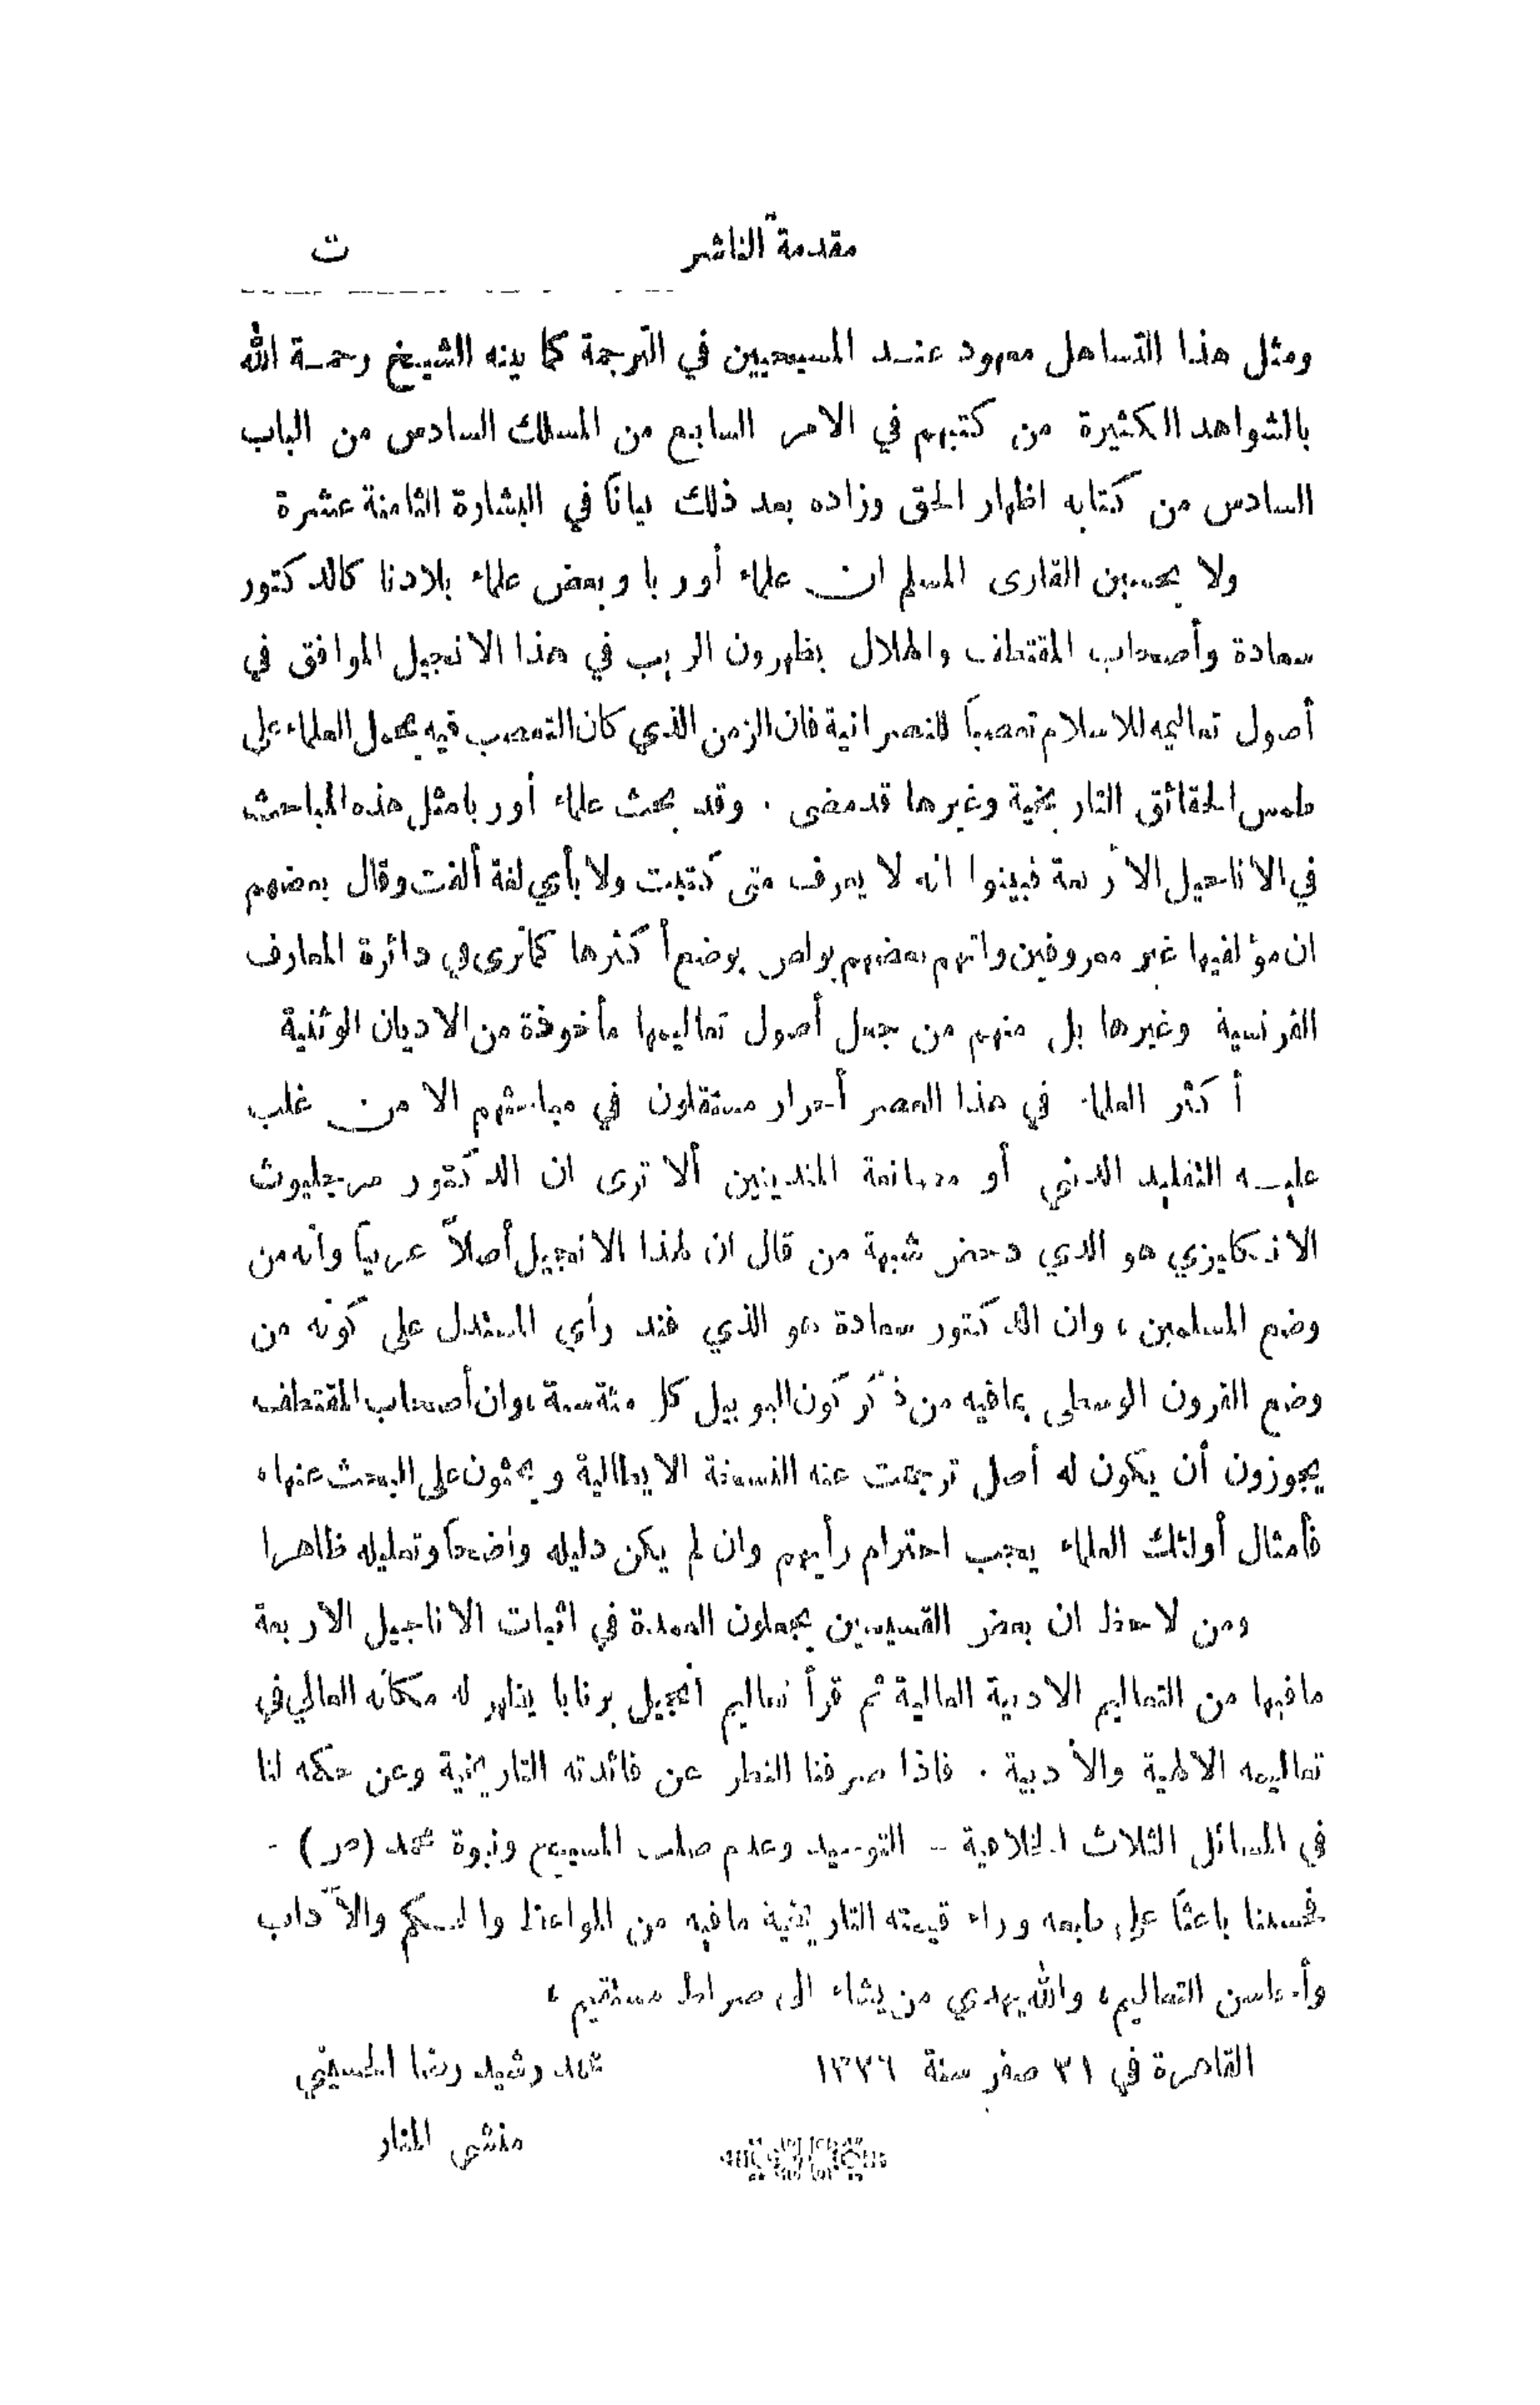 مقدمة الناشر ت
ومثل هذا التساهل معهود عند المسيحيين في الترجمة كما بينه الشيخ رحمة الله
بالشواهد الكثيرة من كتبهم في الامر السابع من المسلك السادس من الباب
السادس من كتابه اظهار الحق وزاده بعد ذلك بيانًا في البشارة الثامنة عشرة
ولا يحسبن القارئ المسلم ان علماء أوربا وبعض علماء بلادنا كالدكتور
سعادة وأصحاب المقتطف والهلال يظهرون الريب في هذا الانجيل الموافق في
أصول تعاليمه للاسلام تعصبًا للنصرانية فان الزمن الذي كان التعصب فيه يحمل العلماء على
طمس الحقائق التاريخية وغيرها قد مضى . وقد بحث علماء أوربا مثل هذه المباحث
في الاناجيل الأربعة فبينوا انه لا يعرف متى كتبت ولا بأي لغة ألفت وقال بعضهم
ان مؤلفيها غير معروفين واتهم بعضهم بولص بوضع أكثرها كما ترى في دائرة المعارف
الفرنسية وغيرها بل منهم من جعل أصول تعاليمها مأخوذة من الاديان الوثنية
أكثر العلماء في هذا العصر أحرار مستقلون في مباحثهم الا من غلب
عليه التقليد الديني أو مصانعة المتدينين ألا ترى ان الدكتور مرجليوث
الانكليزي هو الذي دحض شبهة من قال ان لهذا الانجيل أصلاً عربيًا وانه من
وضع المسلمين، وان الدكتور سعادة هو الذي فند رأي المستدل على كونه من
وضع القرون الوسطى بما فيه من ذكر كون اليوبيل كل مئة سنة، وان أصحاب المقتطف
يجوزون أن يكون له أصل ترجمت عنه النسخة الايطالية ويحثون على البحث عنها،
فأمثال أولئك العلماء يجب احترام رأيهم وان لم يكن دليله واضحًا وتعليله ظاهرا
ومن لاحظ ان بعض القسيسين يجعلون العمدة في اثبات الاناجيل الاربعة
مافيها من التعاليم الادبية العالية ثم قرأ تعاليم انجيل برنابا يظهر له مكانه العالي في
تعاليمه الالهية والأدبية . فاذا صرفنا النظر عن فائدته التاريخية وعن حكمه لنا
في المسائل الثلاث الخلافية – التوحيد وعدم صلب المسيح ونبوة محمد (ص) –
فحسبنا باعثًا على طبعه وراء قيمته التاريخية مافيه من المواعظ والحكم والآداب
وأحاسن التعاليم، والله يهدي من يشاء الى صراط مستقيم،
القاهرة في ٢١ صفر سنة ١٣٢٦ محمد رشيد رضا الحسيني
منشئ المنار